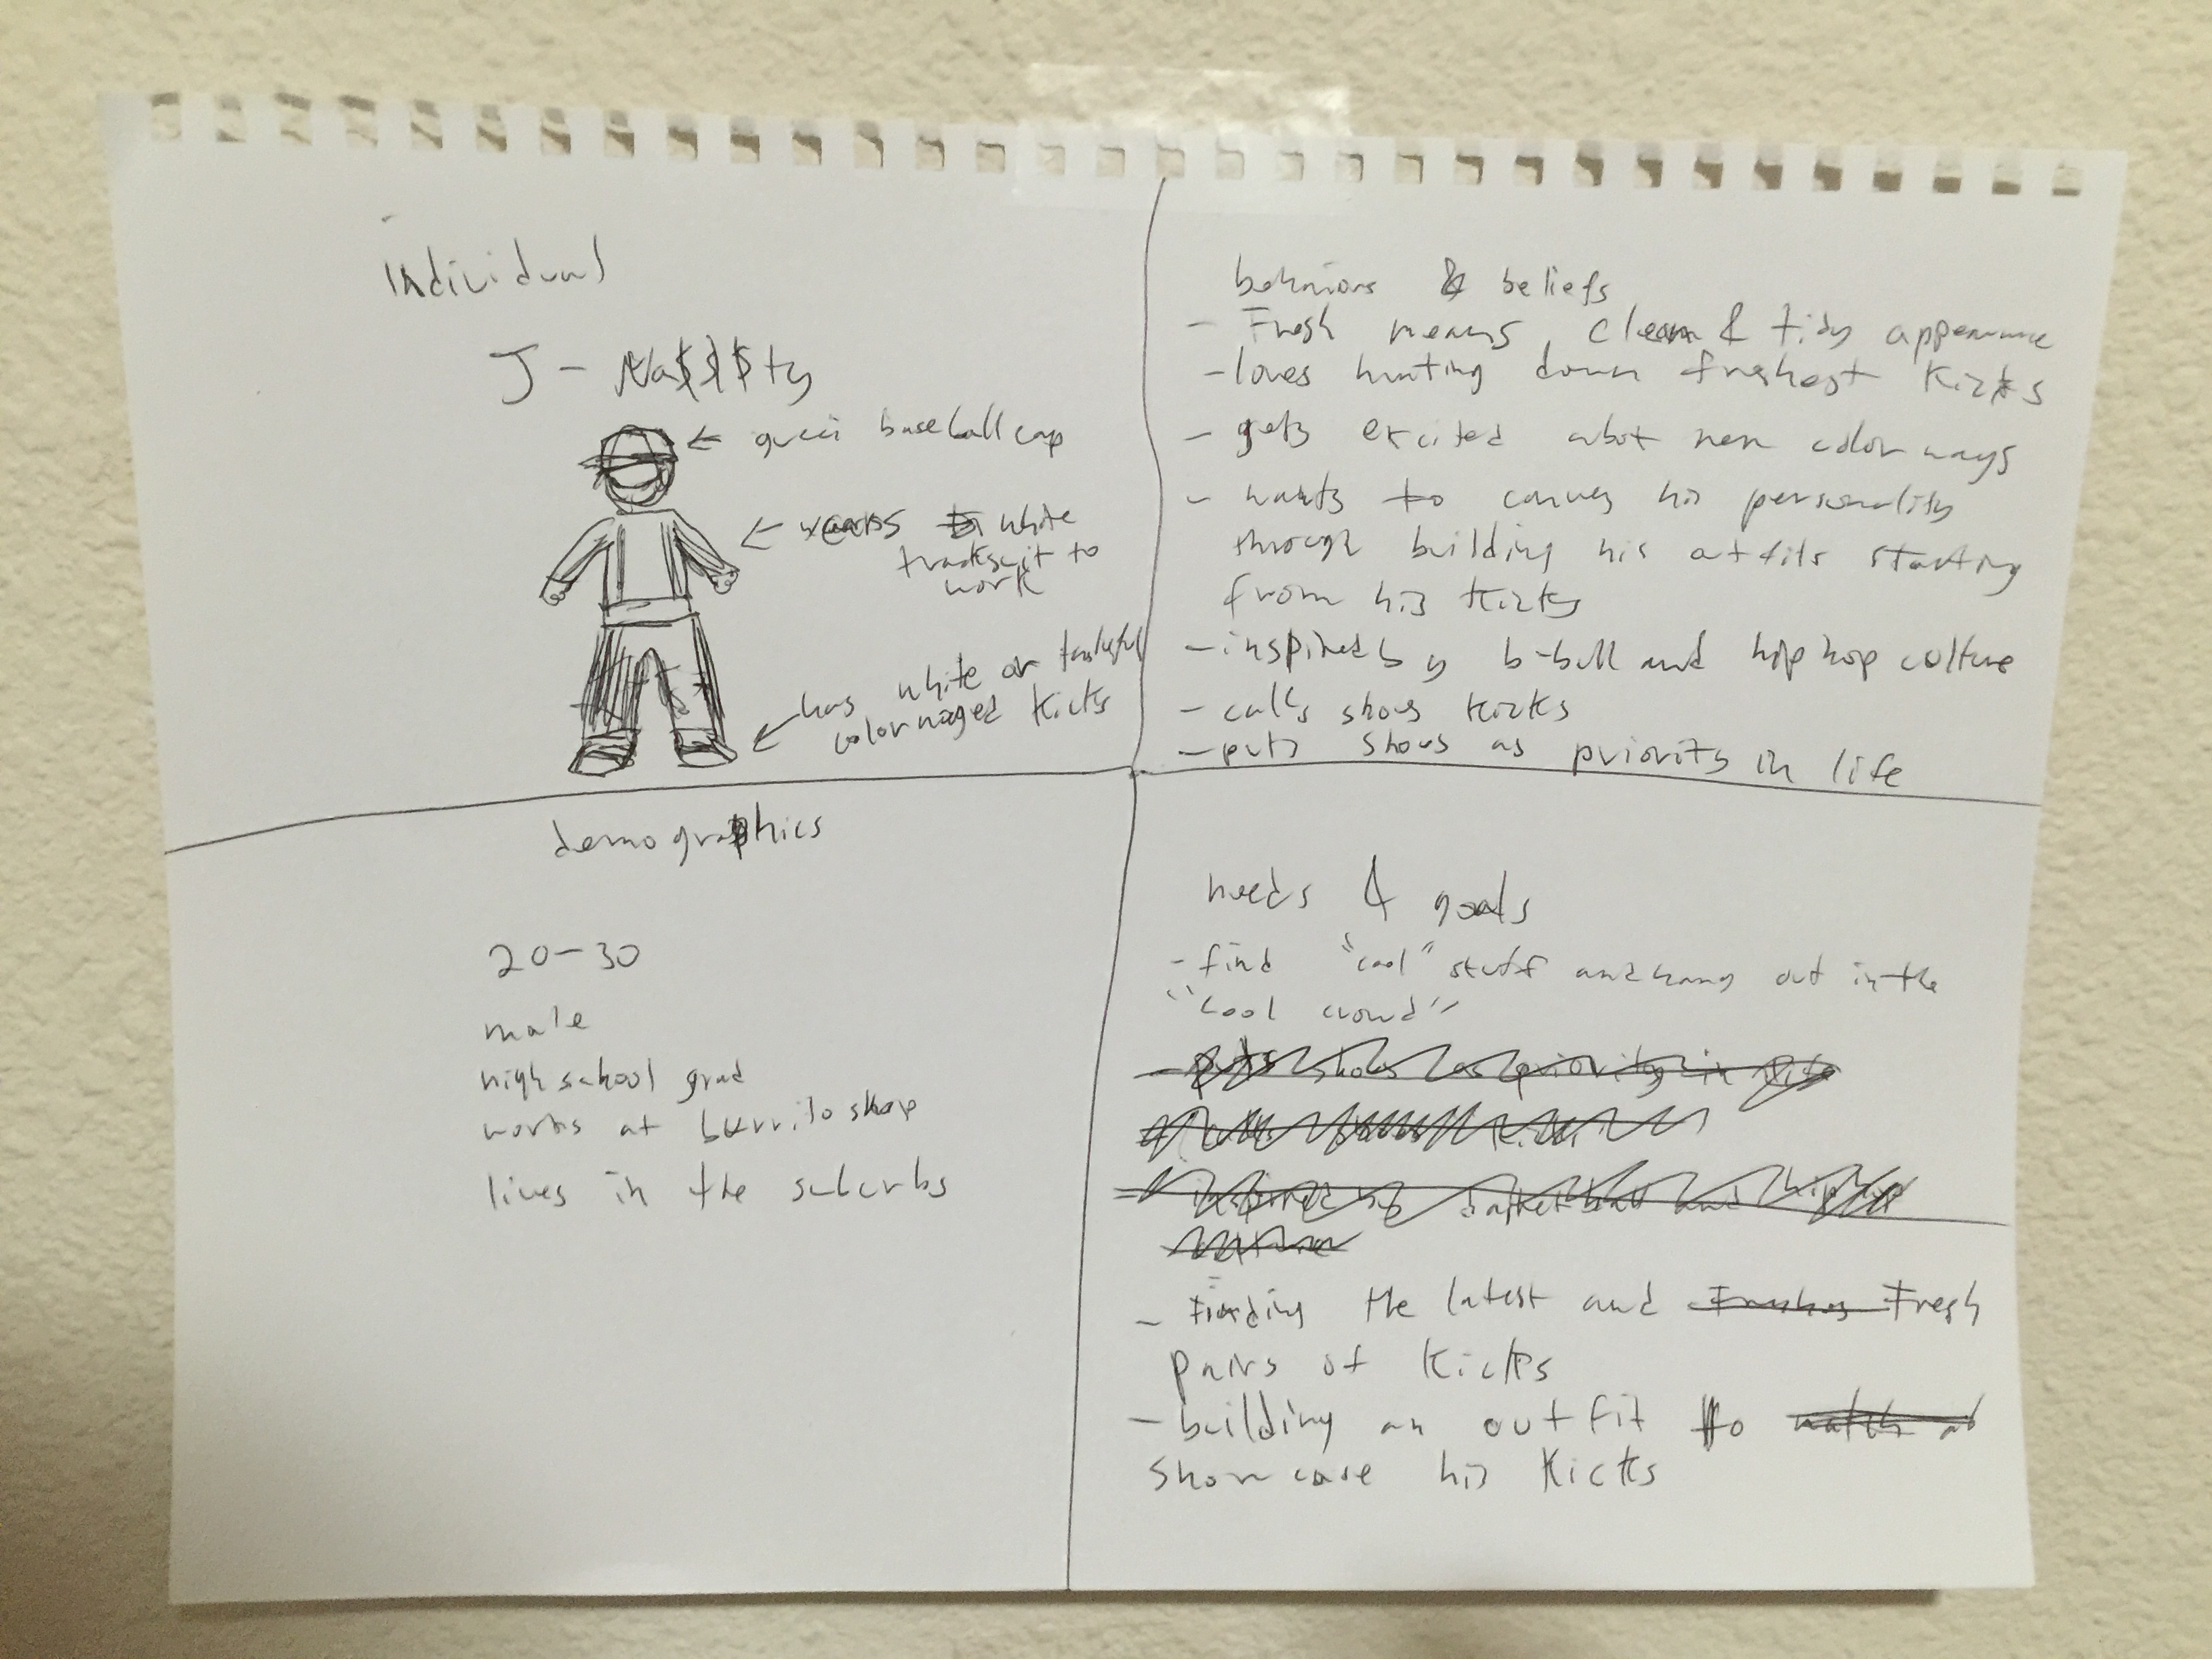 individual
J - Na$$$ty
gucci baseball cap
wears white
tracksuit to
work
has white or tasteful
colorwayed kicks
behaviors & beliefs
- Fresh means clean & tidy appearance
- loves hunting down freshest kicks
- gets excited abot new color ways
- wants to convey his personality
through building his outfits starting
from his kicks
- inspired by b-ball and hip hop culture
- calls shoes kicks
- puts shoes as priority in life
demographics
20-30
male
high school grad
works at burrito shop
lives in the suburbs
needs & goals
- find "cool" stuff and hang out in the
"cool crowd"
- puts shoes as priority in life
inspired by basketball and hip hop
- Finding the latest and Fresh
pairs of kicks
- building an outfit to
showcase his kicks